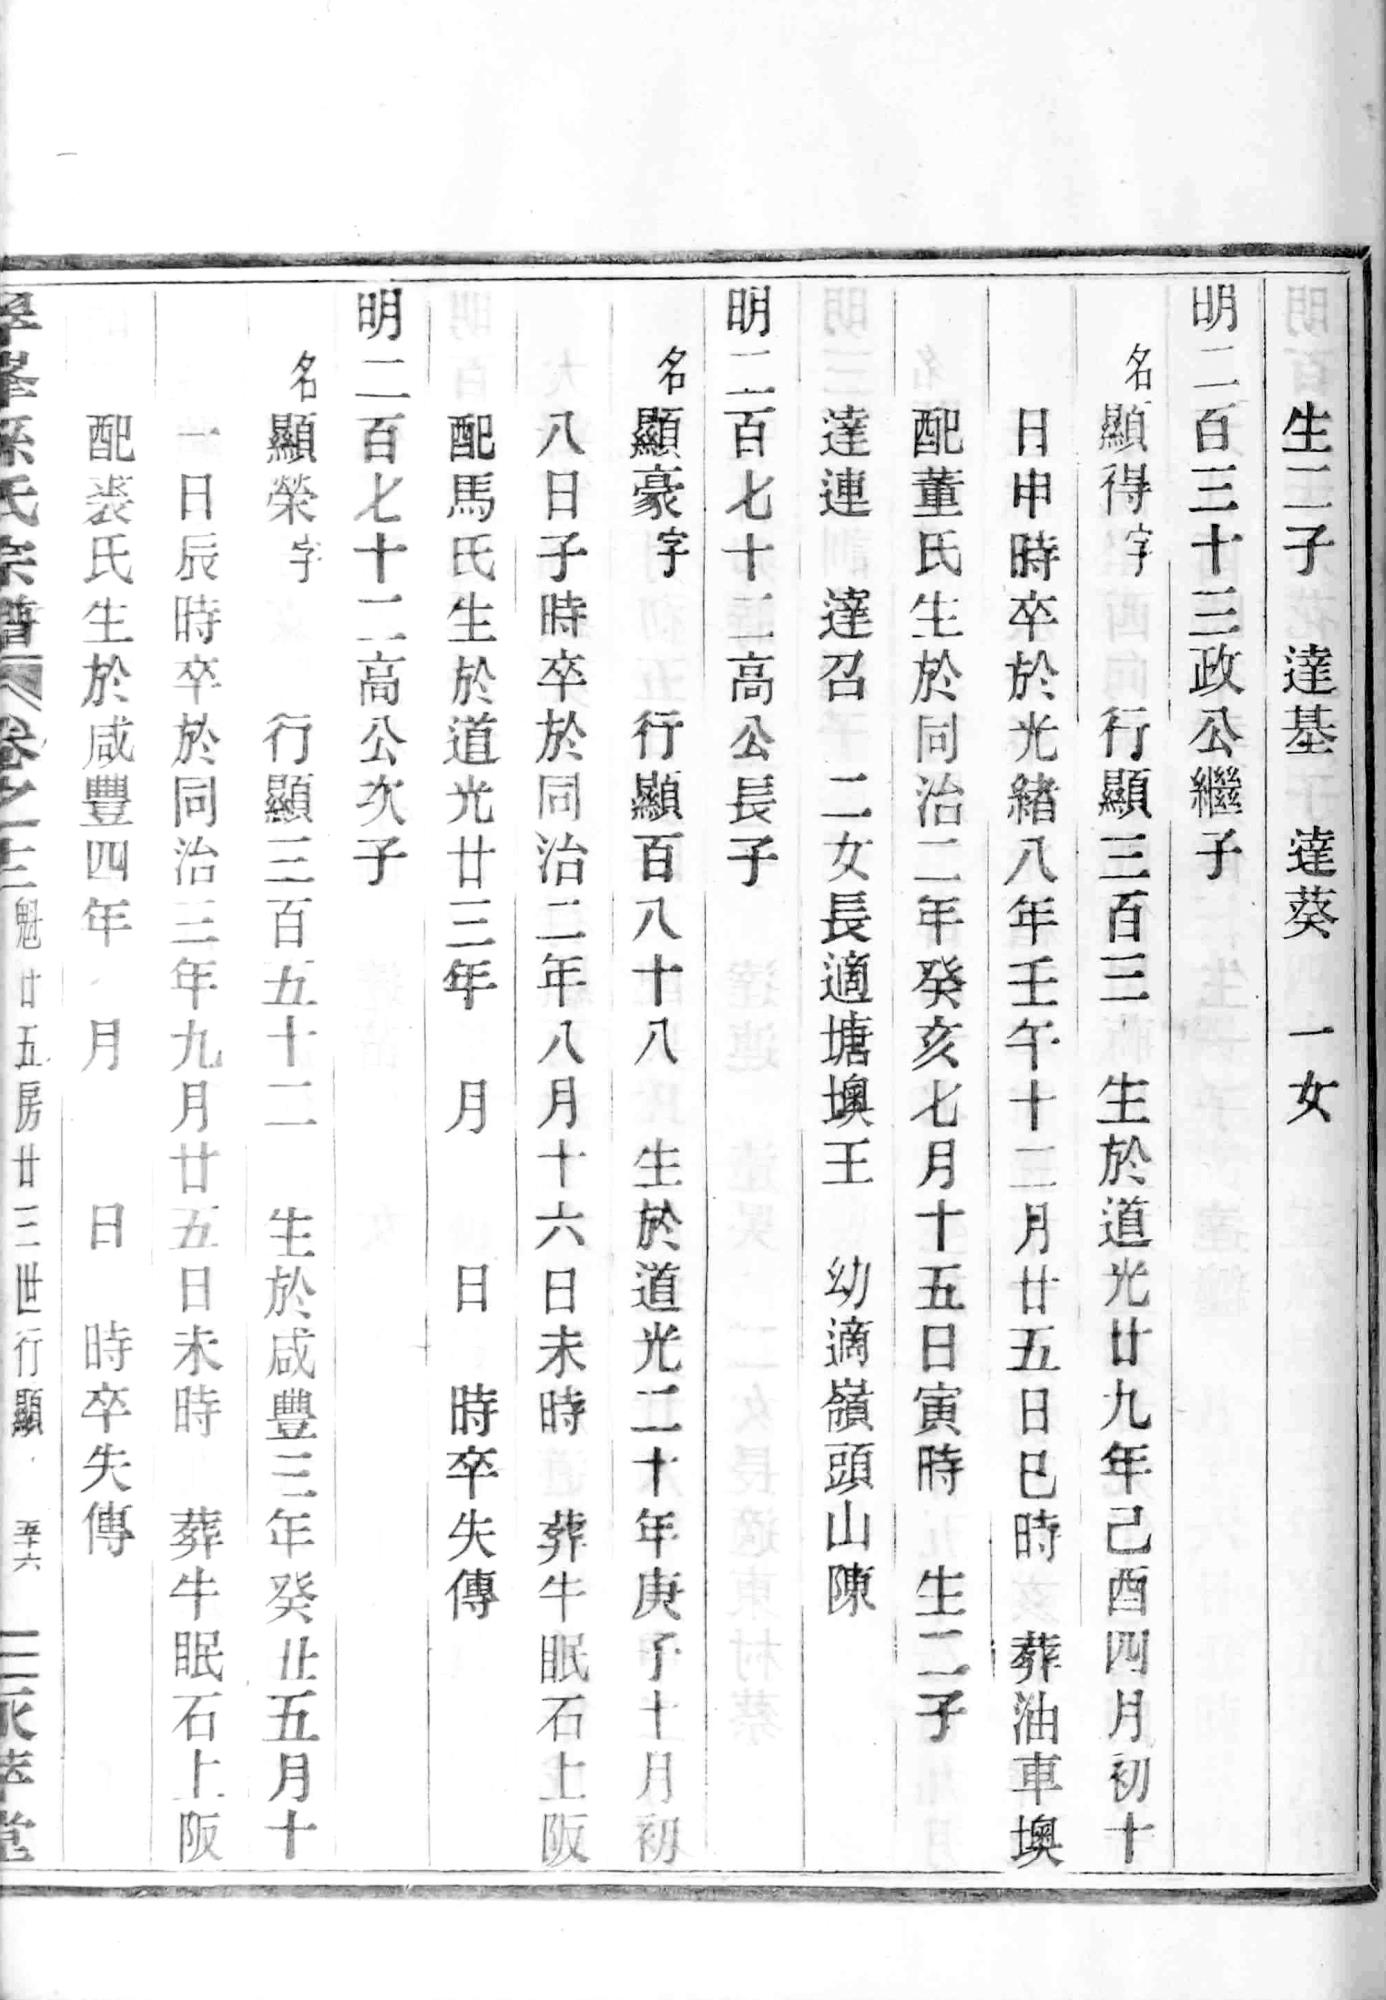 生二子　達基　達葵　一女
明二百三十三政公繼子
名顯得字　行顯三百三　生於道光廿九年己酉四月初十
日申時卒於光緒八年壬午十二月廿五日巳時　葬油車墺
配董氏生於同治二年癸亥七月十五日寅時　生二子
達連　達召　二女長適塘墺王　幼適嶺頭山陳
明二百七十二高公長子
名顯豪字　行顯百八十八　生於道光二十年庚子十月初
八日子時卒於同治二年八月十六日未時　葬牛眠石上阪
配馬氏生於道光廿三年　月　日　時卒失傳
明二百七十二高公次子
名顯榮字　行顯三百五十二　生於咸豐三年癸丑五月十
一日辰時卒於同治三年九月廿五日未時　葬牛眠石上阪
配裘氏生於咸豐四年　月　日　時卒失傳
峯孫氏宗譜　卷之十三魁廿五房廿三世行顯　五十六　永萃堂